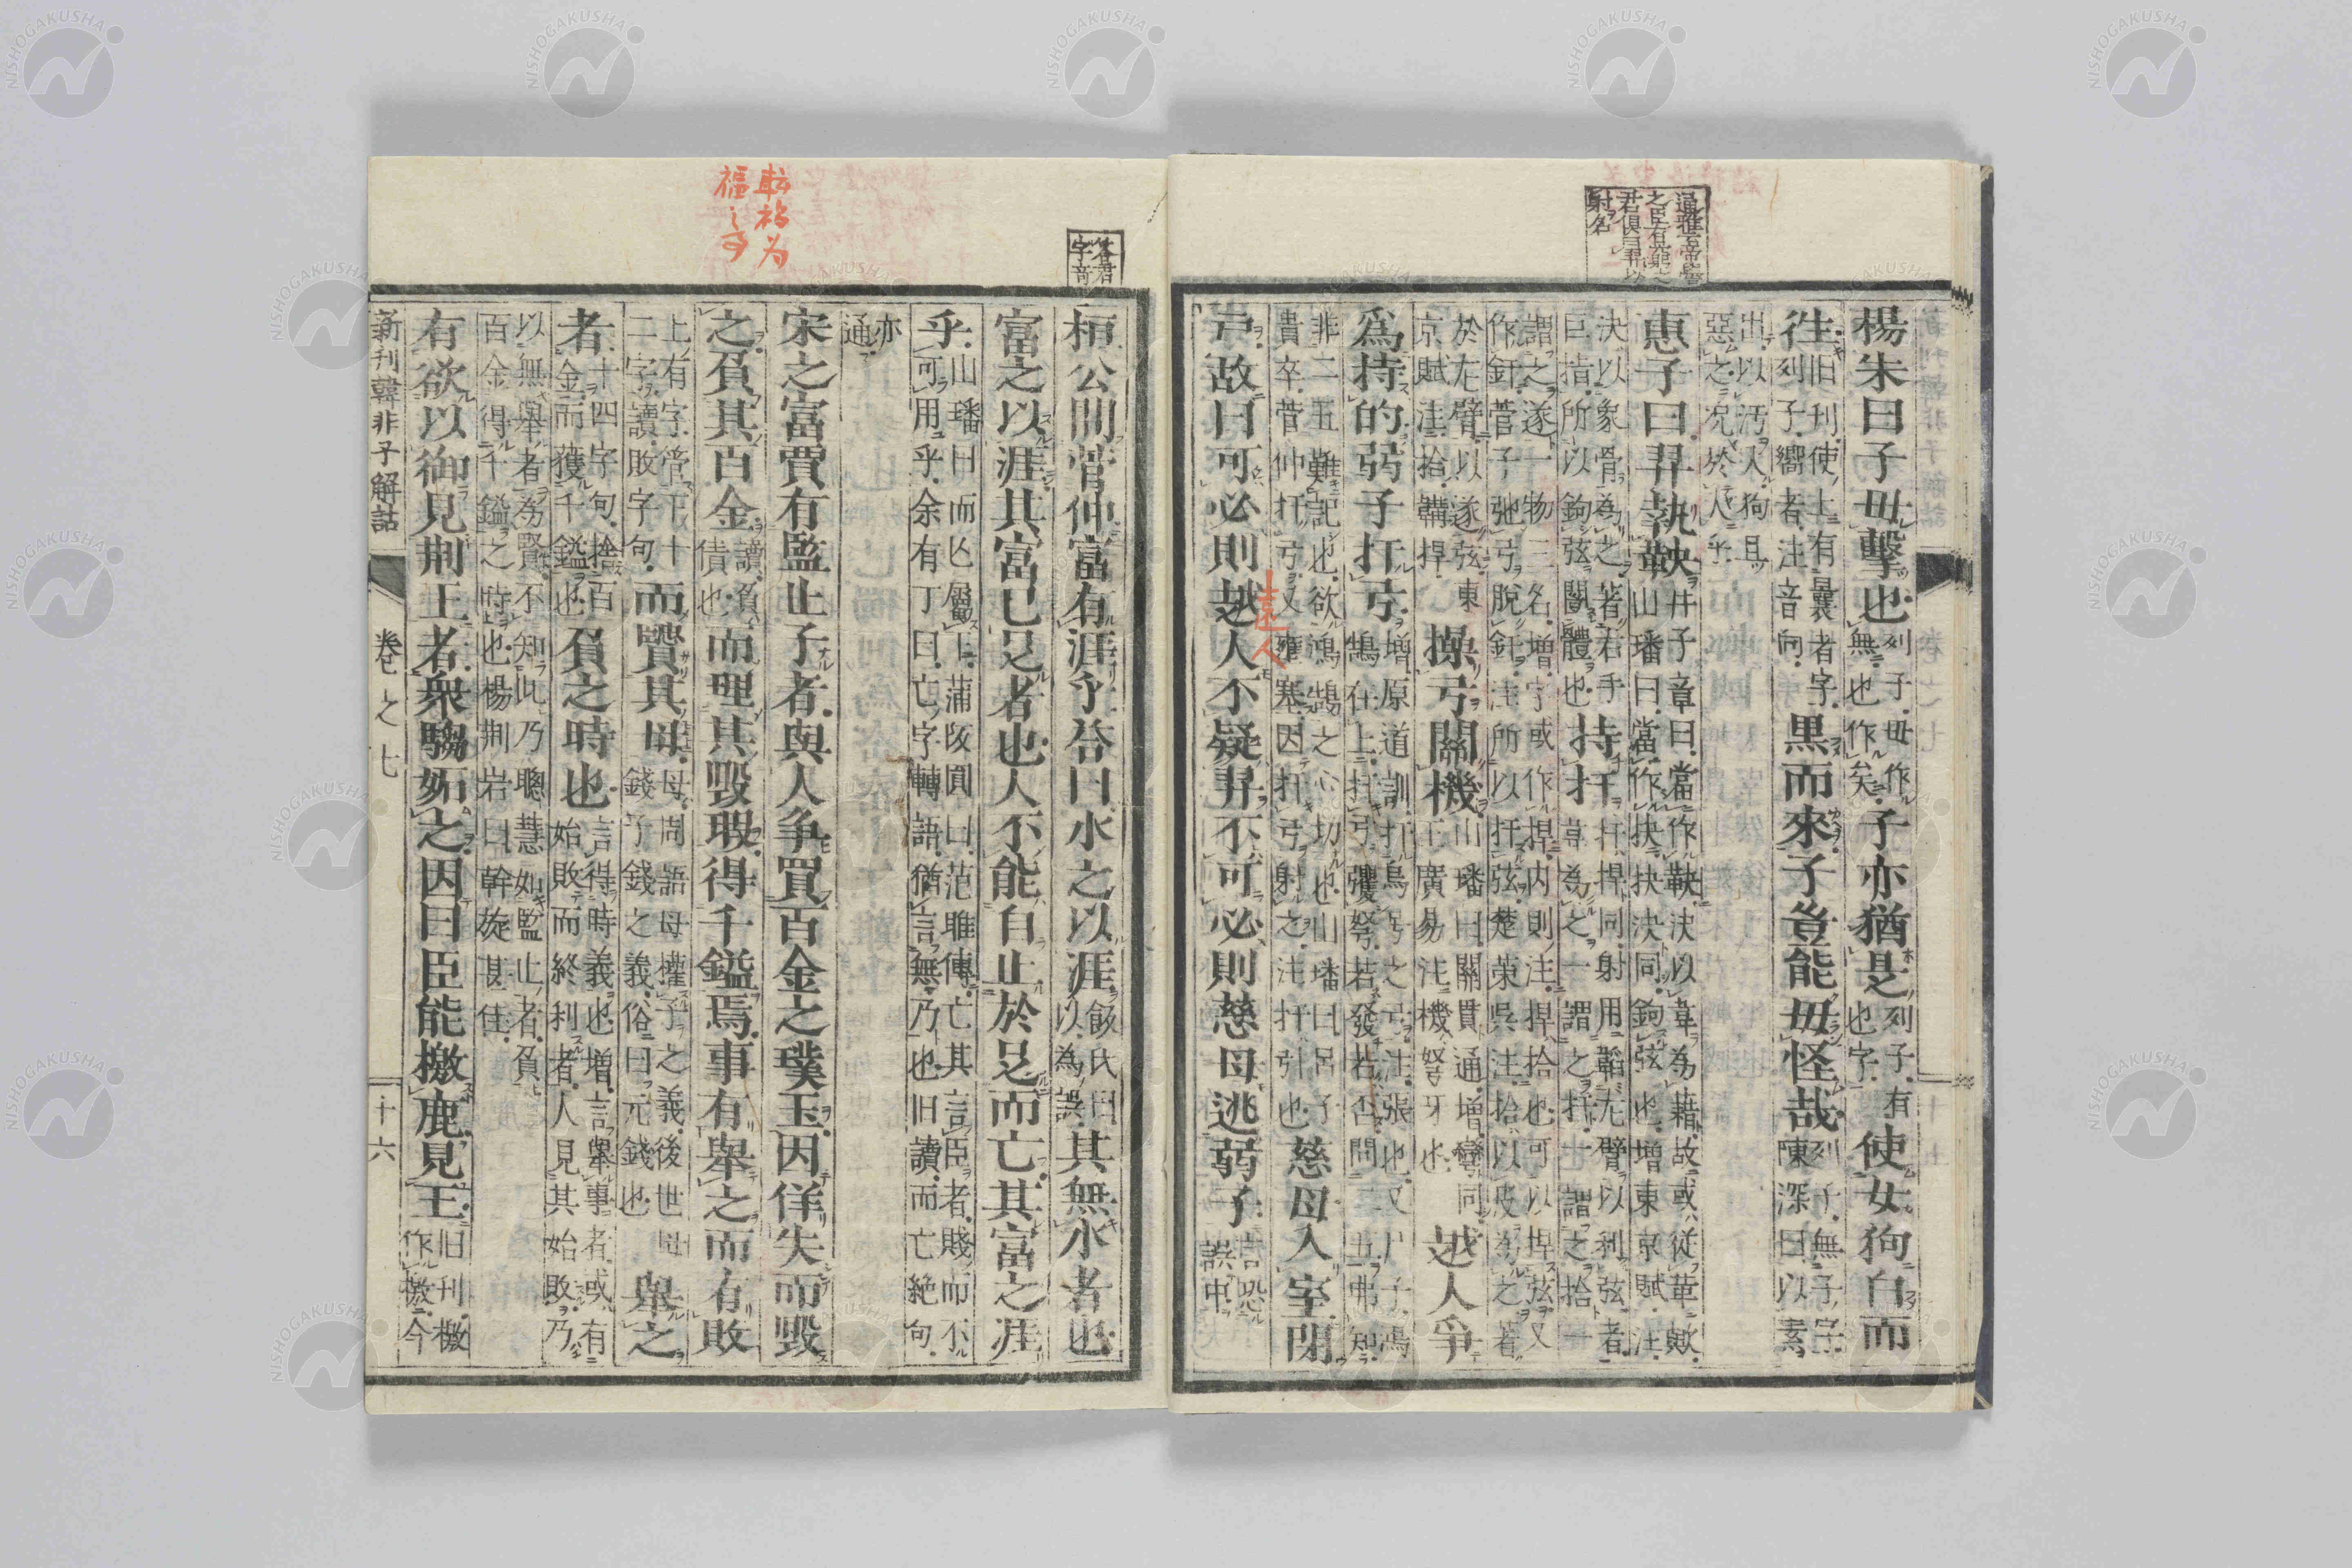 楊朱曰子毋擊也列子毋作無也作矣子亦猶是列子有也字使女狗白而
往旧刊使上有曩者字列子嚮者注音向黒而來子豈能毋怪哉列子無子字陳深曰以素
出以汚人狗且惡之况於人乎
惠子曰羿執鞅井子章曰當作鞅決以韋爲藉故或從革歟山璠曰當作抉抉決同鉤弦也增東京賦注
決以象骨爲之著右手巨指所以鉤弦闓體也持扞扞捍同射用韜左臂以利弦者草爲之一謂之扞也謂之拾一
謂之遂一物三名增字或作捍内則注捍拾也可以捍弦又作釬管子弛弓脱釬注所以扞弦楚策吳注拾以皮爲之著
於左臂以遂弦東京賦注拾韝捍操弓關機山璠曰關貫通增彎同王廣易注機弩牙也越人爭
爲持的弱子扞弓增原道訓扞烏号之弓注張也又尸子鴻鵠在上扞弓彍弩若發若否問二五弗知
非二五難記也欲鴻鵠之心切也山璠曰呂子貴卒管仲扞弓又壅塞因扞弓射之注扞引也慈母入室閉
戸故曰可必則越人不疑羿不可必則慈母逃弱子言恐誤中
通雅帝嚳
射名
遠人
桓公問管仲富有涯乎答曰水之以涯飯氏曰以為誤其無水者也
富之以涯其富已足者也人不能自止於足而亡其富之涯
乎山璠曰而亡屬上蒲阪圓曰范雎傳亡其言臣者賤而不可用乎余有丁曰亡字轉語猶言無乃也旧讀而亡絶句
亦通
宋之富賈有監止子者與人爭買百金之璞玉因佯失而毀
之負其百金讀負債也而理其毀瑕得千鎰焉事有舉之而有敗
上有字管下十二字讀敗字句而賢其毋母周語母權子之義後世母錢子錢之義俗曰元錢也舉之
者十四字句捨百金而獲千鎰也負之時也言得時義也增言舉事者或有始敗而終利者人見其始敗乃
以無舉者爲賢不知此乃聰慧如監止者負百金得千鎰之時也楊荆岩曰幹旋甚佳
有欲以御見荆王者衆騶妬之因曰臣能撽鹿見王旧刊撽作檄今
新刊韓非子解詁
卷之七
十六
転禍为
福之事